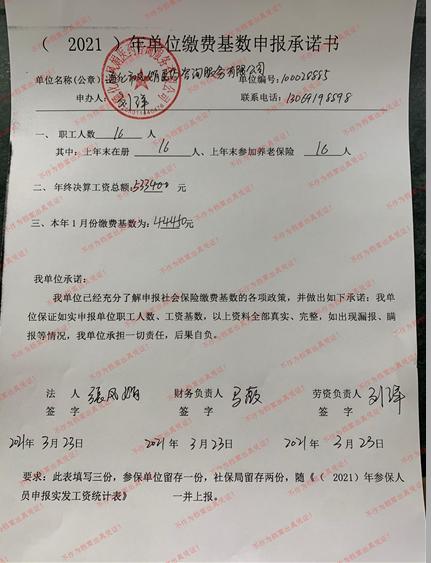 （ 2021 ）年单位缴费基数申报承诺书
单位名称(公章): 咨询服务有限公司 单位编号: 100020865
申办人: 刘萍 联系电话: 13069198598
一、 职工人数 16 人
其中: 上年末在册 16 人、上年末参加养老保险 16 人
二、 年终决算工资总额 533400 元
三、本年 1 月份缴费基数为: 44440元
我单位承诺:
我单位已经充分了解申报社会保险缴费基数的各项政策，并做出如下承诺: 我单
位保证如实申报单位职工人数、工资基数，以上资料全部真实、完整，如出现漏报、瞒
报等情况，我单位承担一切责任，后果自负。
法 人 张凤娟 财务负责人 马薇 劳资负责人 刘萍
签 字 签 字 签 字
2021年 3 月 23日 2021 年 3 月 23日 2021 年 3 月 23日
要求: 此表填写三份，参保单位留存一份，社保局留存两份，随《（ 2021）年参保人
员申报实发工资统计表》 一并上报。
不作为档案出具凭证!